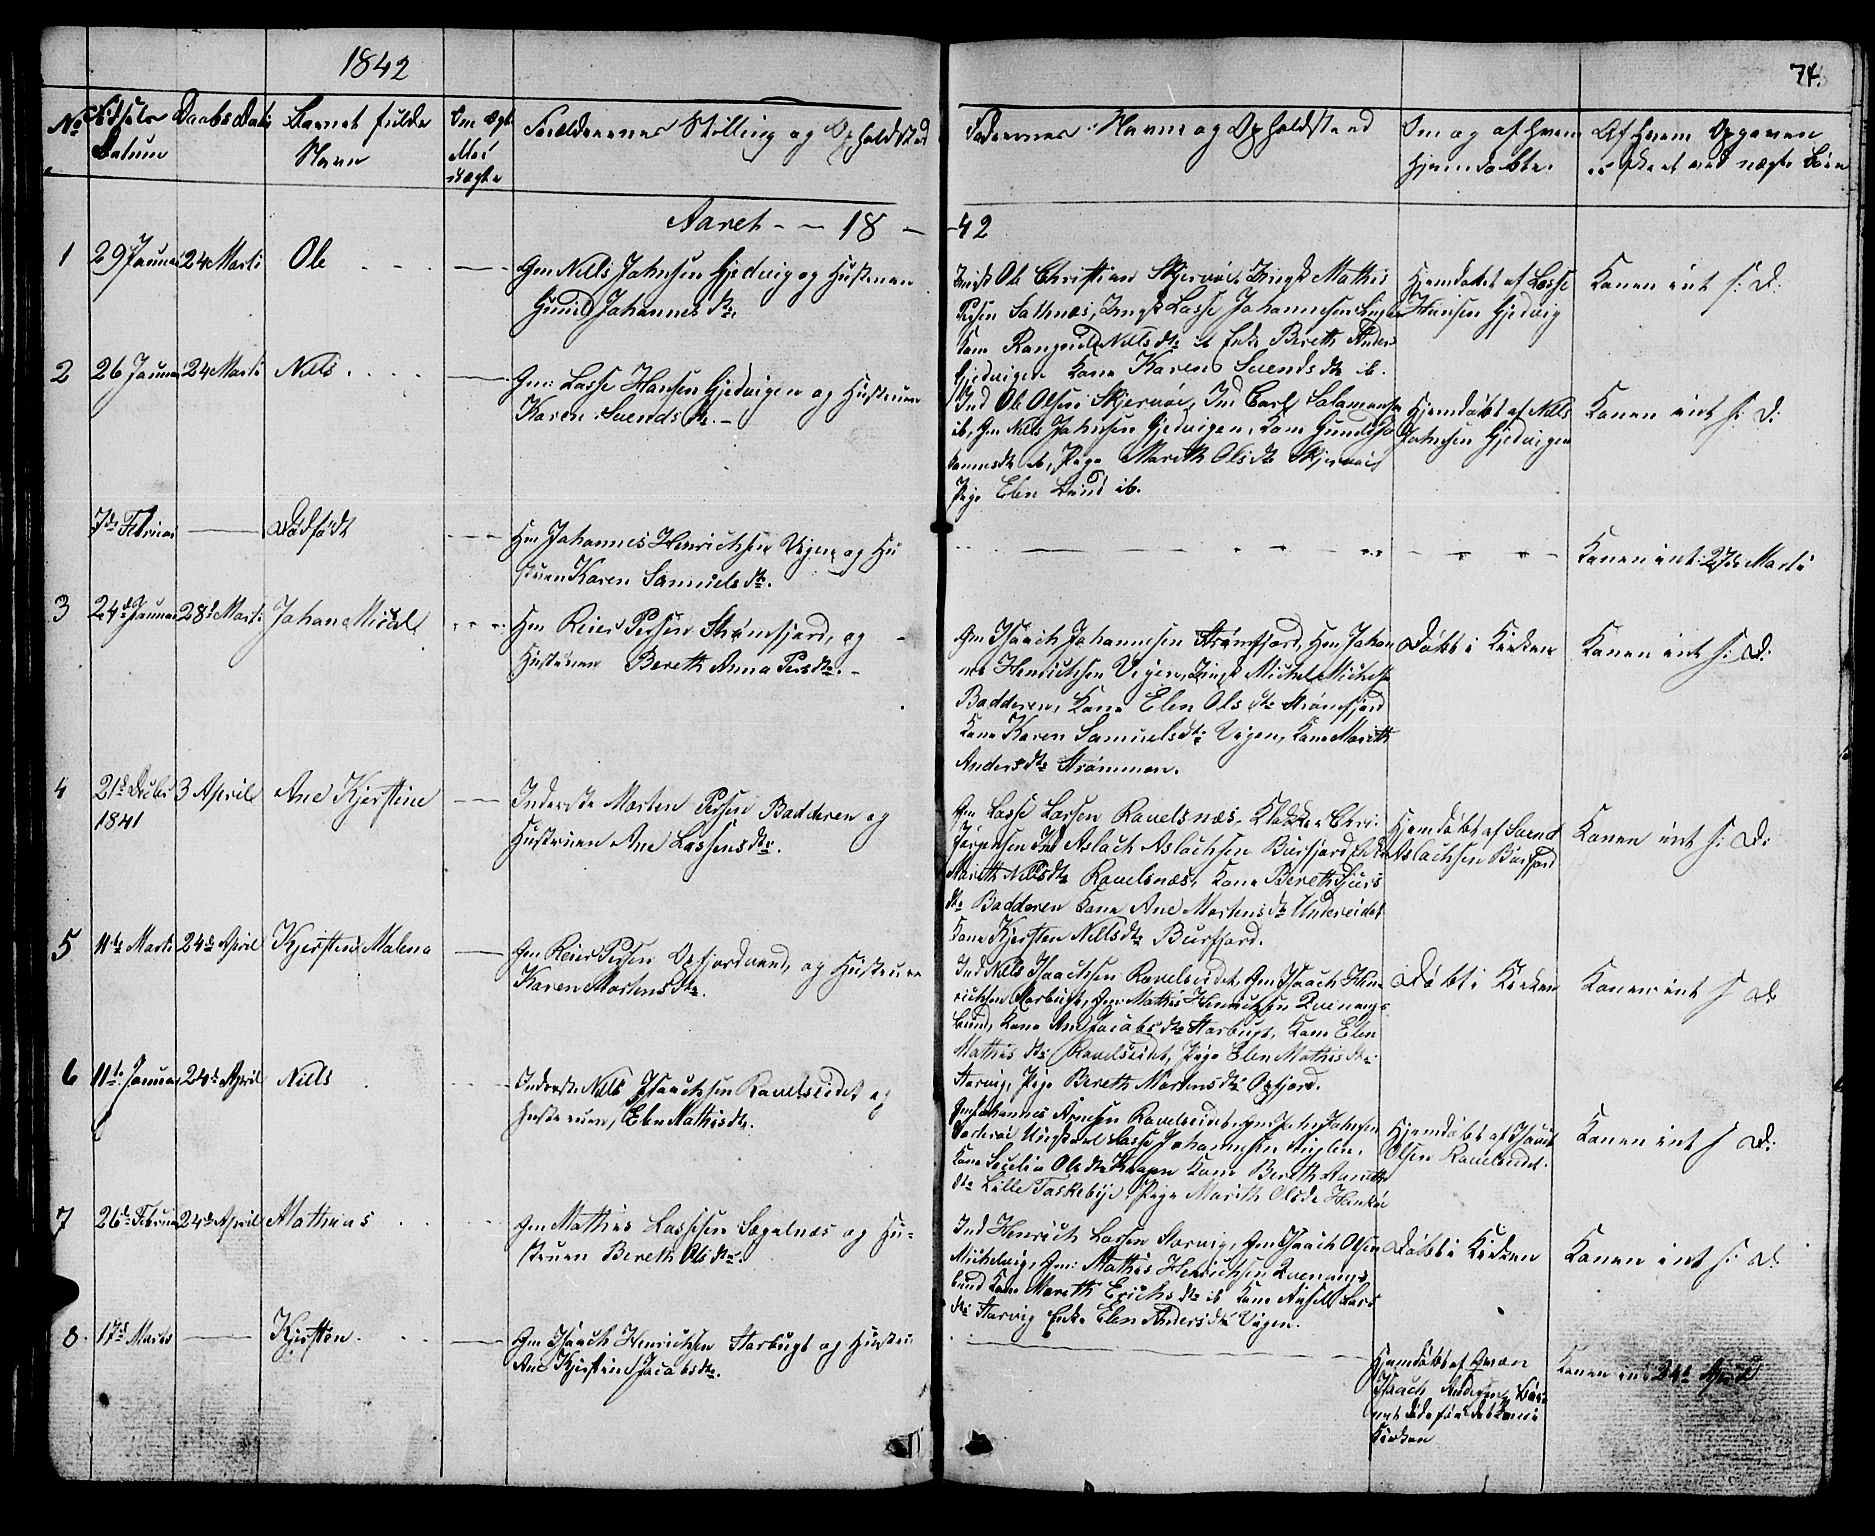 1842
74.
No Fødsels Datum
Daabs Dato
Barnet fulde Navn
Om Ægte eller uægte
Forældrernes Stilling og Opholdsted
Faddernes Navne og Opholdsted
Om og af hvem hjemdøbte.
Af hvem Opgaven
er skeet ved uægte Børn
Aaret - - 18 - - 42
1 29 Januar 24 Marti Ole
Gm Niels Johnsen Gjedvig og Hustruen
Gunild Johannesdtr
Ole Christian Skjervøe, Ungk Mathis
Persen Lasse Johannesen
Kone Rangnild Nilsdtr ib Enke Bereth Anders
Gjedvigen Kone Karen Svendsdtr ib.
Hjemdøbt af Lasse
Hansen Gjedvig
Konen int s: D:
2 26 Januar 24 Marti Niels
Gm: Lasse Hansen Gjedvigen og Hustruen
Karen Svendsdtr. -
Ind Ole Olsen Skjervøe, Ind Carl Salamonsen
ib, Gm Niels Johnsen Gjedvigen, Kone Gunild Jo
hannesdtr ib, Pige Marith Olsdtr Skjervøe
Pige Elen Lund ib.
Hjemdøbt af Niels
Johnsen Gjedvigen
Konen int s: D:
7de Februar Dødfødt
Hm Johannes Henrichsen Vigen og Hu
struen Karen Samuelsdtr.
Konen int: 27de Marti
3 24de Januar 28de Marti Johan Michel
Hm Reier Persen Strømfjord, og
Hustruen Bereth Anna Persdtr. -
Gm Isaach Johannesen Strømfjord, Hm Johan
nes Henrichsen Vigen, Ungk Michel Michelsen
Badderen, Kone Elen Olsdtr Strømfjord
Kone Karen Samuelsdtr Vigen, Kone Marith
Andersdtr Strømmen.
Døbt i Kirken
Konen int s: D:
4 21de Decbr 1841 3 April Ane Kjerstine
Inderste Morten Persen Badderen og
Hustruen Ane Lassensdtr.
Gm Lasse Larsen Ravelsnæs, Klokker Chri.
Jørgensen Ind Aslach Aslachsen Burfjord Enke
Marith Nilsdtr Ravelsnæs, Kone Bereth
dtr Badderen Kone Ane Mortensdtr Undereidet
Kone Kjersten Nilsdtr Burfjord.
Hjemdøbt af Svend
Aslachsen Burfjord
Konen int s: D:
5 11te Marti 24de April Kjersten Malena
Gm Reier Persen Oxfjordvand, og Hustruen
Karen Mortensdtr.
Ind Niels Isaachsen Ravelseidet, Gm Isaach Hen
richsen Storbugt, Gm Mathis Henrichsen Qvenangs
bund, Kone Ane Jacobsdtr Storbugt, Kone Elen
Mathisdtr Ravelseidet, Pige Elen Mathisdtr
Storvig, Pige Bereth Mortensdtr Oxfjord.
Døbt i Kirken
Konen int s D
6 11te Januar 24de April Niels
Inderste Niels Isaachsen Ravelseidet og
Hustruen, Elen Mathisdtr.
Gm Johannes Ravelseidet, Gm John Johnsen
Lasse Johannesen
Kone Cecelia Olsdtr Kone Bereth
dtr Lille Taskebye, Pige Marith Olsdtr
Hjemdøbt af Isaach
Olsen Ravelseidet.
Konen int s D:
7 26de Februar 24de April Mathias
Gm Mathis Lassesen Segelnæs og Hu-
struen Bereth Olsdtr.
Ind Henrich Larsen Storvig, Gm Isaach Olsen
Gm: Mathis Henrichsen Qvenangs
bund Kone Mareth Erichsdtr ib Kone Lars
dtr Storvig Enke Elen Andersdtr Vigen.
Døbt i Kirken
Konen int s: D:
8. 17de Marts Kjersten
Gm Isaach Henrichsen Storbugt og Hustru
Ane Kjerstine Jacobsdtr.
Hjemdøbt af
Isaach Andersen, Bar-
net døde før det kom i
Kirken
Konen int 24de April